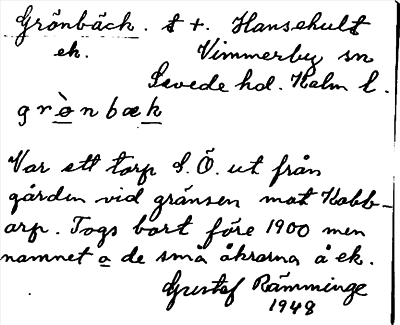 Grönbäck. t +. Hansehult
ek. Vimmerby sn
Sevede hd. Kalm l.
grø̀nbæk
Var ett torp S.Ö. ut från
gården vid gränsen mot Kabb-
arp. Togs bort före 1900 men
namnet a de små åkrarna å ek.
Gustaf Rämminge
1948